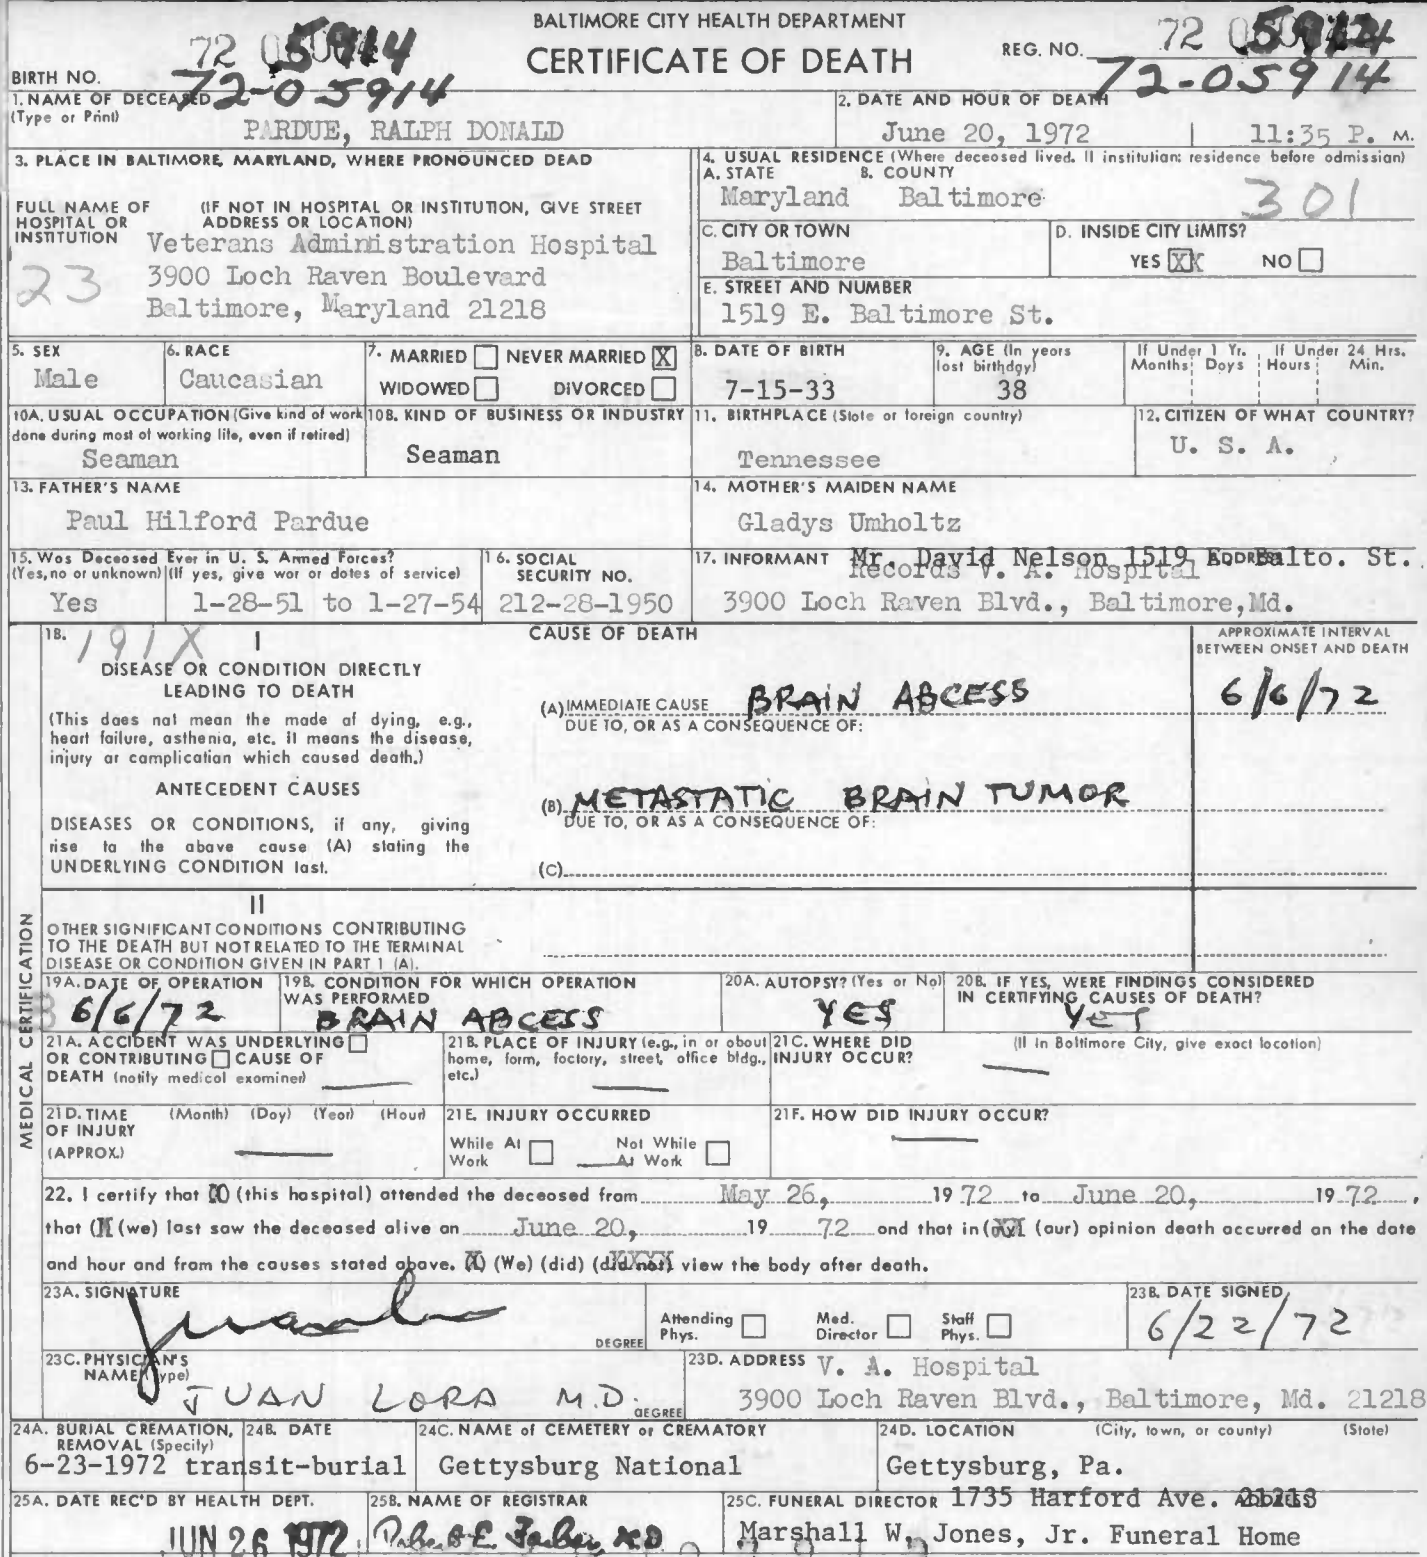 BALTIMORE CITY HEALTH DEPARTMENT
CERTIFICATE OF DEATH
72 5914
BIRTH NO. 72-05914
REG. NO. 72
72-05914
1. NAME OF DECEASED
(Type or Print)
PARDUE, RALPH DONALD
2. DATE AND HOUR OF DEATH
June 20, 1972 | 11:35 P. M.
3. PLACE IN BALTIMORE, MARYLAND, WHERE PRONOUNCED DEAD
FULL NAME OF HOSPITAL OR INSTITUTION
(IF NOT IN HOSPITAL OR INSTITUTION, GIVE STREET ADDRESS OR LOCATION)
Veterans Administration Hospital
3900 Loch Raven Boulevard
Baltimore, Maryland 21218
23
4. USUAL RESIDENCE (Where deceased lived. If institution: residence before admission)
A. STATE B. COUNTY
Maryland Baltimore
301
C. CITY OR TOWN
Baltimore
D. INSIDE CITY LIMITS?
YES XX NO
E. STREET AND NUMBER
1519 E. Baltimore St.
5. SEX
Male
6. RACE
Caucasian
7. MARRIED NEVER MARRIED X
WIDOWED DIVORCED
8. DATE OF BIRTH
7-15-33
9. AGE (In years last birthday)
38
If Under 1 Yr. Months Days
If Under 24 Hrs. Hours Min.
10A. USUAL OCCUPATION (Give kind of work done during most of working life, even if retired)
Seaman
10B. KIND OF BUSINESS OR INDUSTRY
Seaman
11. BIRTHPLACE (State or foreign country)
Tennessee
12. CITIZEN OF WHAT COUNTRY?
U. S. A.
13. FATHER'S NAME
Paul Hilford Pardue
14. MOTHER'S MAIDEN NAME
Gladys Umholtz
15. Was Deceased Ever in U. S. Armed Forces?
(Yes, no or unknown) (If yes, give war or dates of service)
Yes 1-28-51 to 1-27-54
16. SOCIAL SECURITY NO.
212-28-1950
17. INFORMANT Mr. David Nelson 1519 E. Balto. St.
ADDRESS
Records V. A. Hospital
3900 Loch Raven Blvd., Baltimore, Md.
MEDICAL CERTIFICATION
18. 191X
I
DISEASE OR CONDITION DIRECTLY
LEADING TO DEATH
(This does not mean the mode of dying, e.g.,
heart failure, asthenia, etc. It means the disease,
injury or complication which caused death.)
ANTECEDENT CAUSES
DISEASES OR CONDITIONS, if any, giving
rise to the above cause (A) stating the
UNDERLYING CONDITION last.
CAUSE OF DEATH
APPROXIMATE INTERVAL
BETWEEN ONSET AND DEATH
(A) IMMEDIATE CAUSE BRAIN ABCESS 6/6/72
DUE TO, OR AS A CONSEQUENCE OF:
(B) METASTATIC BRAIN TUMOR
DUE TO, OR AS A CONSEQUENCE OF:
(C)
II
OTHER SIGNIFICANT CONDITIONS CONTRIBUTING
TO THE DEATH BUT NOT RELATED TO THE TERMINAL
DISEASE OR CONDITION GIVEN IN PART 1 (A).
19A. DATE OF OPERATION
6/6/72
19B. CONDITION FOR WHICH OPERATION WAS PERFORMED
BRAIN ABCESS
20A. AUTOPSY? (Yes or No)
YES
20B. IF YES, WERE FINDINGS CONSIDERED IN CERTIFYING CAUSES OF DEATH?
YES
21A. ACCIDENT WAS UNDERLYING
OR CONTRIBUTING CAUSE OF
DEATH (notify medical examiner)
21B. PLACE OF INJURY (e.g., in or about home, farm, factory, street, office bldg., etc.)
21C. WHERE DID INJURY OCCUR? (If in Baltimore City, give exact location)
21D. TIME OF INJURY (APPROX.) (Month) (Day) (Year) (Hour)
21E. INJURY OCCURRED
While At Work Not While At Work
21F. HOW DID INJURY OCCUR?
22. I certify that (I) (this hospital) attended the deceased from May 26, 1972 to June 20, 1972,
that (I) (we) last saw the deceased alive on June 20, 19 72 and that in (my) (our) opinion death occurred on the date
and hour and from the causes stated above. (I) (We) (did) (did not) view the body after death.
23A. SIGNATURE
DEGREE
Attending Phys. Med. Director Staff Phys.
23B. DATE SIGNED
6/22/72
23C. PHYSICIAN'S NAME (Type)
JUAN LORA M.D.
DEGREE
23D. ADDRESS V. A. Hospital
3900 Loch Raven Blvd., Baltimore, Md. 21218
24A. BURIAL CREMATION, REMOVAL (Specify) 24B. DATE
6-23-1972 transit-burial
24C. NAME of CEMETERY or CREMATORY
Gettysburg National
24D. LOCATION (City, town, or county) (State)
Gettysburg, Pa.
25A. DATE REC'D BY HEALTH DEPT.
JUN 26 1972
25B. NAME OF REGISTRAR
Robert E. Farber, M.D.
25C. FUNERAL DIRECTOR 1735 Harford Ave. 21213
ADDRESS
Marshall W. Jones, Jr. Funeral Home